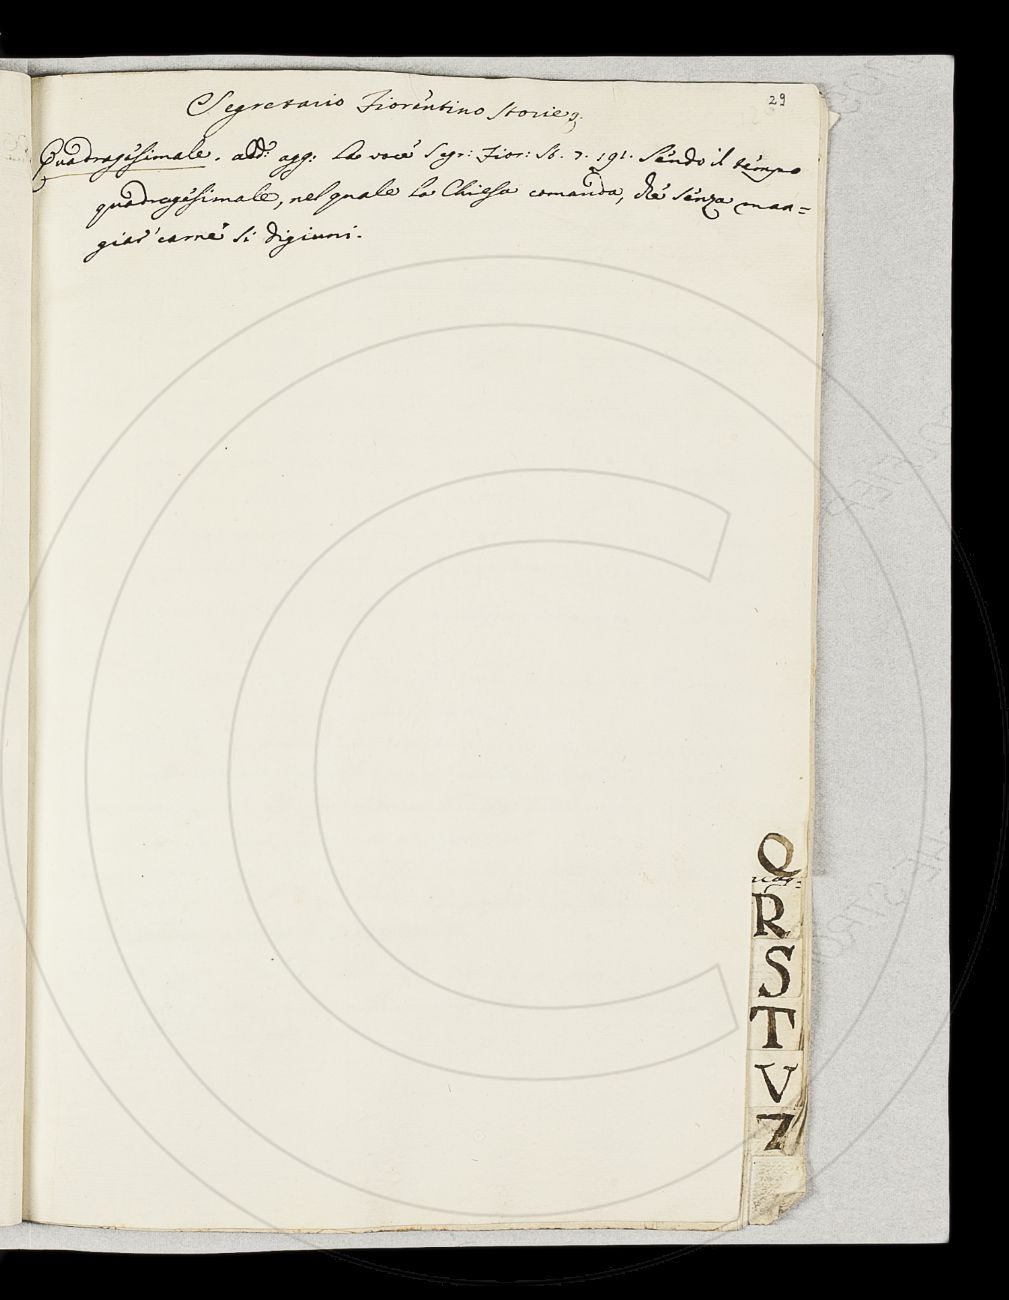 29
Segretario Fiorentino Storie
Quadragesimale. add: agg: La voce Segr: Fior: St. 7. 191. Sendo il tempo
quadragesimale, nel quale la Chiesa comanda, che senza man=
giar' carne si digiuni.
Q
R
S
T
V
Z